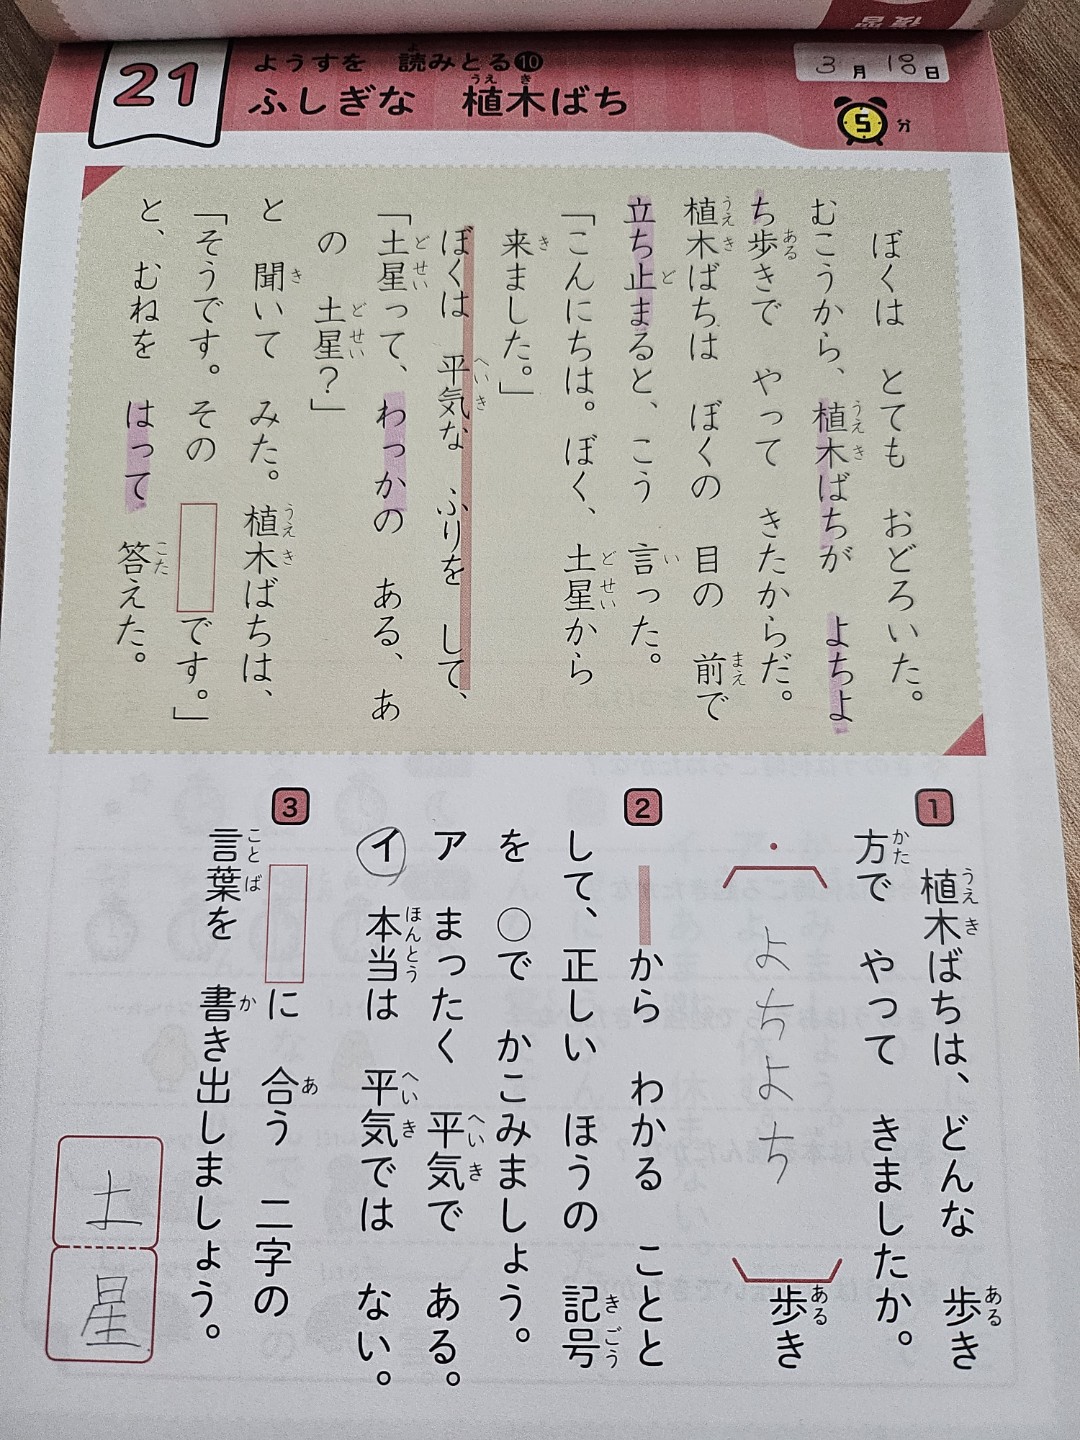 21
ようすを 読みとる⑩
ふしぎな 植木ばち
3月18日
5分
ぼくは とても おどろいた。
むこうから、植木ばちが よちよ
ち歩きで やって きたからだ。
植木ばちは ぼくの 目の 前で
立ち止まると、こう 言った。
「こんにちは。ぼく、土星から
来ました。」
ぼくは 平気な ふりを して、
「土星って、わっかの ある、あ
の 土星?」
と 聞いて みた。植木ばちは、
「そうです。その です。」
と、むねを はって 答えた。
1
植木ばちは、どんな 歩き
方で やって きましたか。
・
よちよち 歩き
2
から わかる ことと
して、正しい ほうの 記号
を ○で かこみましょう。
ア まったく 平気で ある。
イ 本当は 平気では ない。
3
に 合う 二字の
言葉を 書き出しましょう。
土星